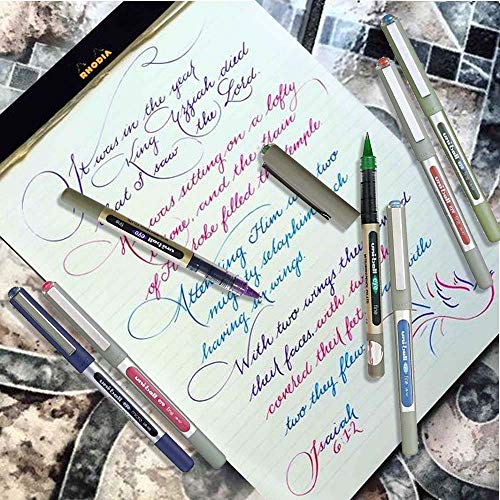 RHODIA
It was in the year
King Uzziah died
that I saw the Lord.
He was sitting on a lofty
throne, and the train
of His robe filled the temple.
Attending Him were two
mighty seraphim, each
having six wings.
With two wings they
their faces, with two
covered they feet, with
two they flew
Isaiah
6:1,2
uni-ball eye fine
uni-ball eye fine
uni-ball eye
uni-ball eye
uni-ball eye
uni-ball eye
uni-ball eye fine